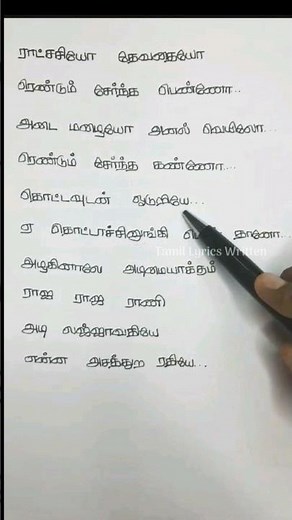 ராட்சசியோ தேவகையோ
ரெண்டும் சேர்ந்த பெண்ணோ..
அடை மழையோ அனல் வெயிலோ...
ரெண்டும் சேர்ந்த கண்ணோ....
தொட்டவுடன் ஓடுறியே...
ஏ தொட்டாச்சினுங்கி தானோ...
Tamil Lyrics Written
அழகினாலே அடிமையாக்கும்
ராஜ ராஜ ராணி
அடி லஜ்ஜாவதியே
என்ன அசத்துற ரதியே...